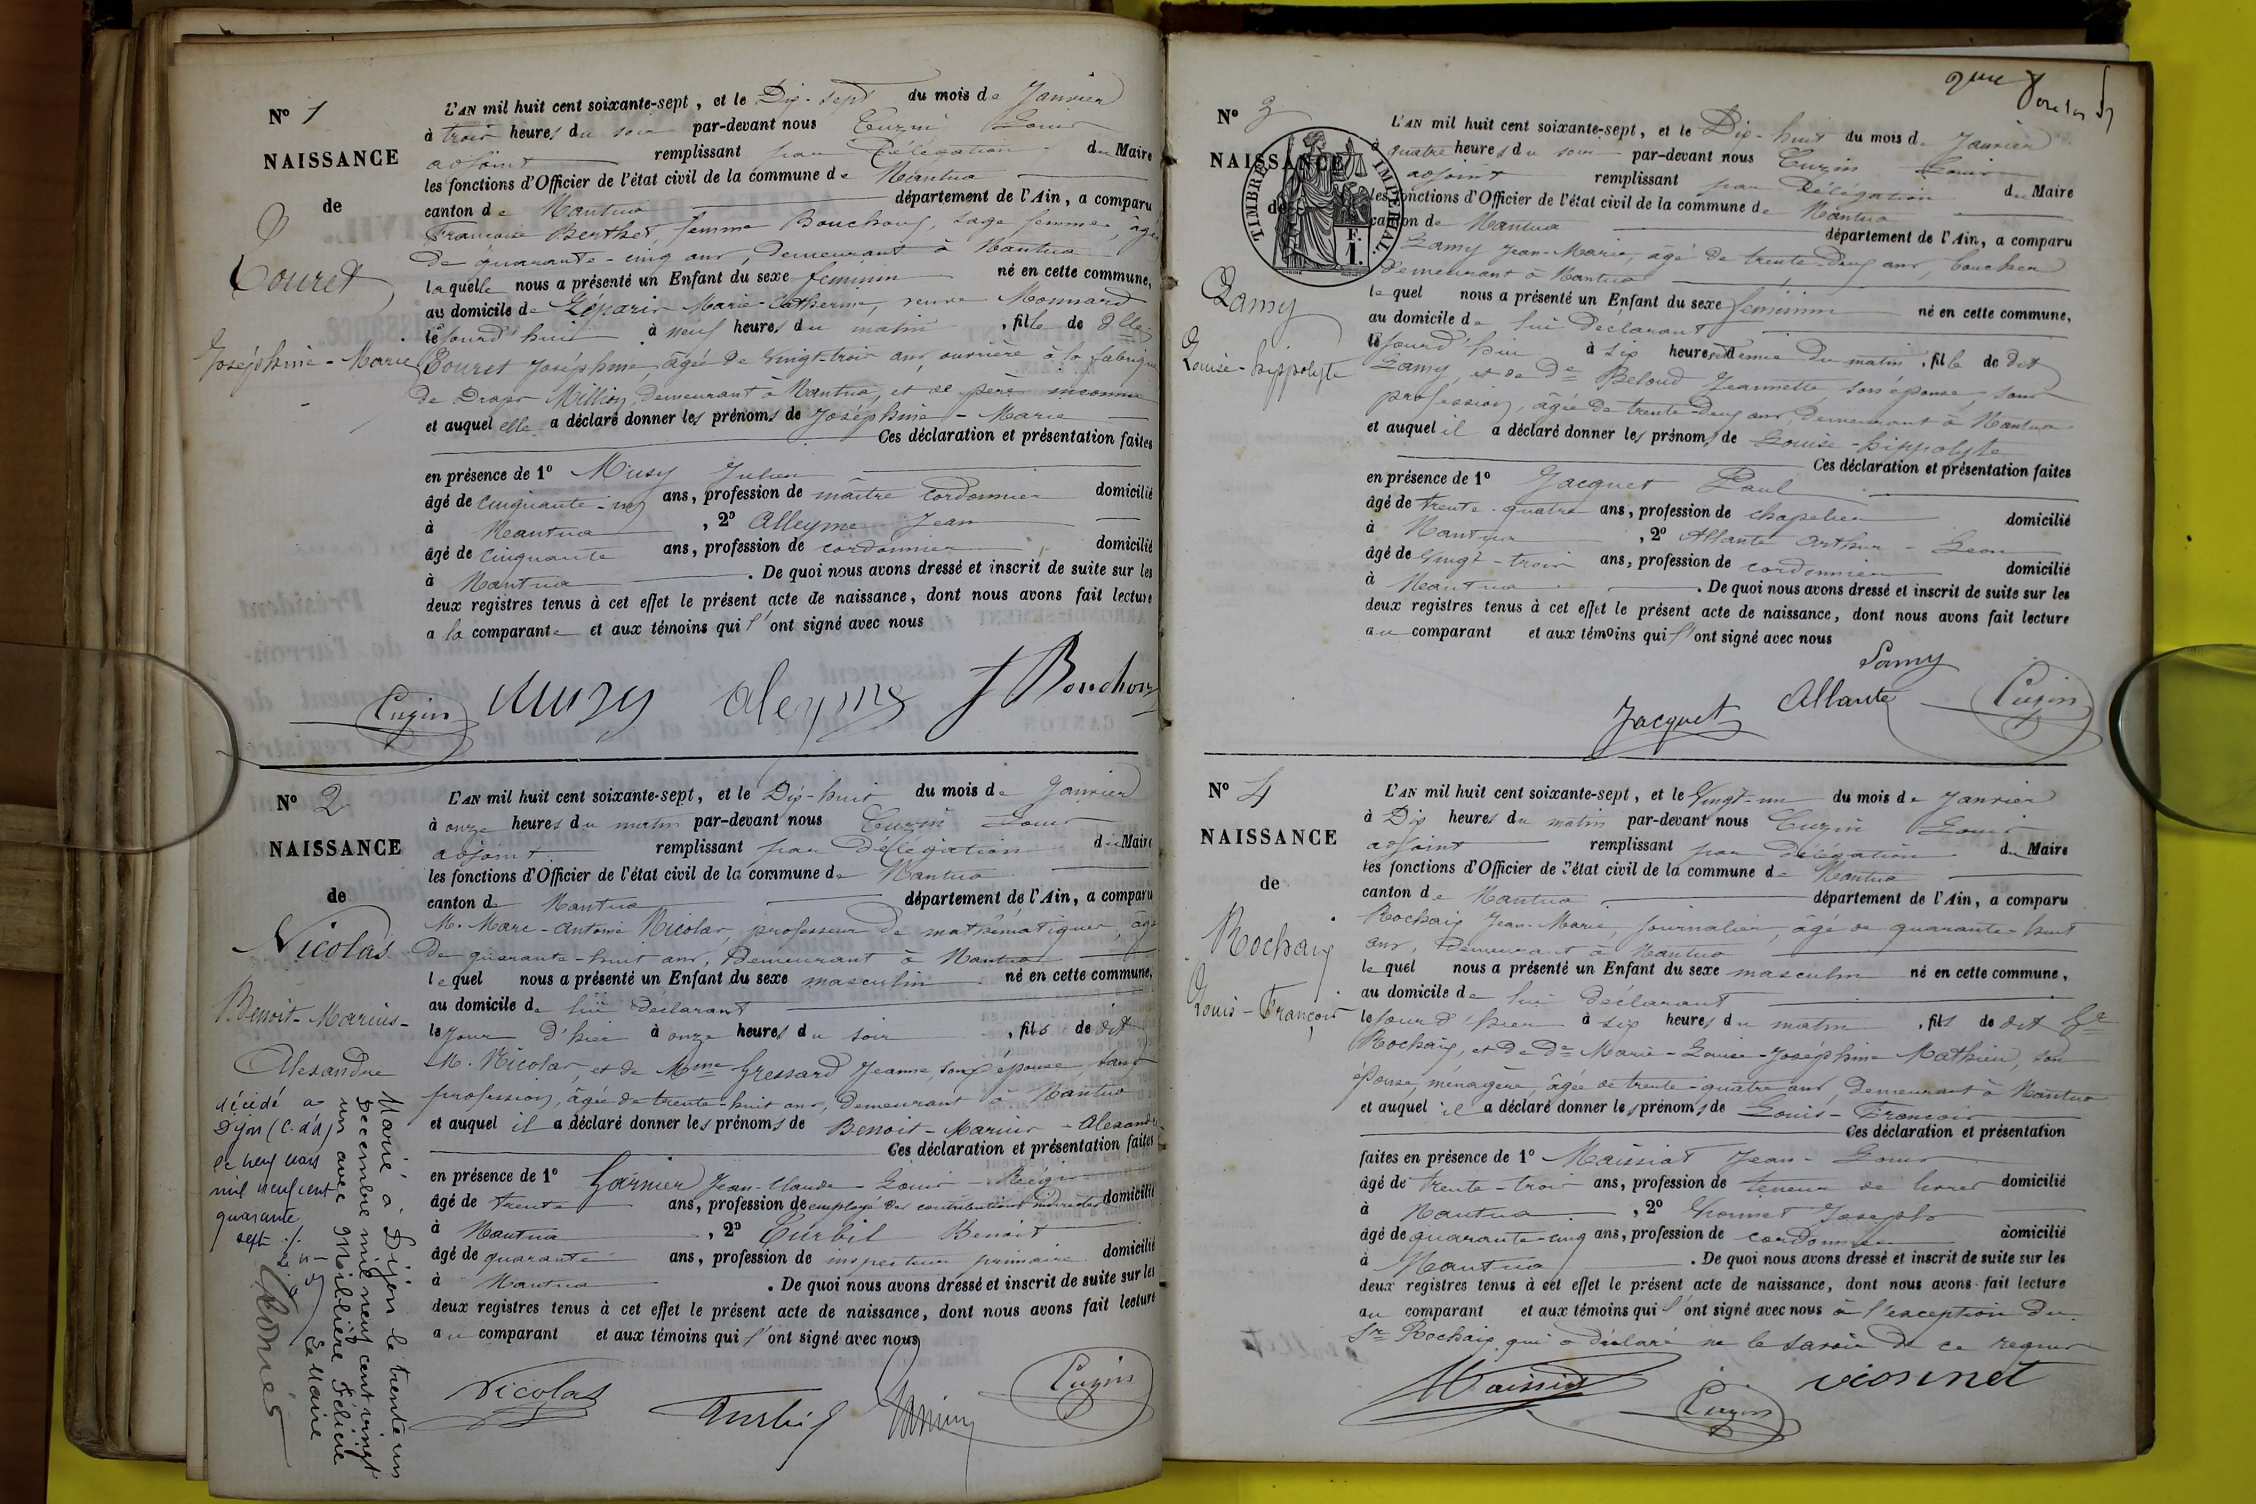 N° 1
NAISSANCE
de
Touret
Joséphine - Marie
L'AN mil huit cent soixante-sept, et le Dix-sept du mois de Janvier
à trois heures du soir par-devant nous Cuzin Louis
adjoint remplissant par Délégation du Maire
les fonctions d'Officier de l'état civil de la commune de Nantua
canton de Nantua département de l'Ain, a comparu
Françoise Berthet, femme Bouchon, sage femme, âgée
de quarante-cinq ans, demeurant à Nantua
laquelle nous a présenté un Enfant du sexe feminin né en cette commune,
au domicile de Marie-Catherine, veuve Monnard
le jourd'hui à neuf heures du matin, fille de Dlle
Touret Joséphine, âgée de vingt-trois ans, ouvrière à la fabrique
de Draps Million, demeurant à Nantua, et de père inconnu
et auquel elle a déclaré donner les prénoms de Joséphine - Marie
Ces déclaration et présentation faites
en présence de 1° Musy Julien
âgé de cinquante-un ans, profession de maître cordonnier domicilié
à Nantua, 2° Alleyme Jean
âgé de cinquante ans, profession de cordonnier domicilié
à Nantua. De quoi nous avons dressé et inscrit de suite sur les
deux registres tenus à cet effet le présent acte de naissance, dont nous avons fait lecture
a la comparante et aux témoins qui l'ont signé avec nous
Cuzin Muzy Aleyme f Bouchon
N° 2
NAISSANCE
de
Nicolas
Benoit-Marius-
Alexandre
L'AN mil huit cent soixante-sept, et le Dix-huit du mois de Janvier
à onze heures du matin par-devant nous Cuzin Louis
adjoint remplissant par Délégation du Maire
les fonctions d'Officier de l'état civil de la commune de Nantua
canton de Nantua département de l'Ain, a comparu
M. Marc-Antoine Nicolas, professeur de mathématiques, âgé
de quarante-huit ans, demeurant à Nantua
lequel nous a présenté un Enfant du sexe masculin né en cette commune,
au domicile de lui déclarant
le jour d'hier à onze heures du soir, fils de dit
M. Nicolas, et de Mme Gressard Jeanne, son épouse, sans
profession, âgée de trente-huit ans, demeurant à Nantua
et auquel il a déclaré donner les prénoms de Benoit-Marius-Alexandre
Ces déclaration et présentation faites
en présence de 1° Garnier Jean-Claude-Louis-Régis
âgé de trente ans, profession de employé des contributions indirectes domicilié
à Nantua, 2° Turbil Benoit
âgé de quarante ans, profession de inspecteur primaire domicilié
à Nantua. De quoi nous avons dressé et inscrit de suite sur les
deux registres tenus à cet effet le présent acte de naissance, dont nous avons fait lecture
au comparant et aux témoins qui l'ont signé avec nous
Nicolas Turbil Garnier Cuzin
décédé à
Dijon (C. d'Or)
le neuf mars
mil neuf cent
quarante
sept ./.
Marié à Dijon le trente un
Décembre mil neuf cent vingt
un avec Félicie
Le Maire
2me
N° 3
NAISSANCE
de
TIMBRE IMPERIAL
F.
1.
Lamy
Louise-hippolyte
L'AN mil huit cent soixante-sept, et le Dix-huit du mois de Janvier
à quatre heures du soir par-devant nous Cuzin Louis
adjoint remplissant par Délégation du Maire
les fonctions d'Officier de l'état civil de la commune de Nantua
canton de Nantua département de l'Ain, a comparu
Lamy Jean-Marie, âgé de trente-deux ans, boucher
demeurant à Nantua
lequel nous a présenté un Enfant du sexe féminin né en cette commune,
au domicile de lui déclarant
le jourd'hui à six heures et demie du matin, fille de dit
Lamy, et de De Beloud Jeannette, son épouse, sans
profession, âgée de trente-deux ans, demeurant à Nantua
et auquel il a déclaré donner les prénoms de Louise-hippolyte
Ces déclaration et présentation faites
en présence de 1° Jacquet Paul
âgé de trente-quatre ans, profession de chapelier domicilié
à Nantua, 2° Allante Arthur-Léon
âgé de vingt-trois ans, profession de cordonnier domicilié
à Nantua. De quoi nous avons dressé et inscrit de suite sur les
deux registres tenus à cet effet le présent acte de naissance, dont nous avons fait lecture
au comparant et aux témoins qui l'ont signé avec nous
Lamy
Jacquet Allante Cuzin
N° 4
NAISSANCE
de
Rochaix
Louis-François
L'AN mil huit cent soixante-sept, et le Vingt-un du mois de Janvier
à Dix heures du matin par-devant nous Cuzin Louis
adjoint remplissant par Délégation du Maire
les fonctions d'Officier de l'état civil de la commune de Nantua
canton de Nantua département de l'Ain, a comparu
Rochaix Jean-Marie, journalier, âgé de quarante-huit
ans, demeurant à Nantua
lequel nous a présenté un Enfant du sexe masculin né en cette commune,
au domicile de lui déclarant
le jour d'hier à six heures du matin, fils de dit Sr
Rochaix, et de De Marie-Louise-Joséphine Mathieu, son
épouse, ménagère, âgée de trente-quatre ans, demeurant à Nantua
et auquel il a déclaré donner les prénoms de Louis-François
Ces déclaration et présentation
faites en présence de 1° Maissiat Jean-Louis
âgé de trente-trois ans, profession de teneur de livres domicilié
à Nantua, 2° Vionnet Joseph
âgé de quarante-cinq ans, profession de cordonnier domicilié
à Nantua. De quoi nous avons dressé et inscrit de suite sur les
deux registres tenus à cet effet le présent acte de naissance, dont nous avons fait lecture
au comparant et aux témoins qui l'ont signé avec nous à l'exception du
Sr Rochaix qui a déclaré ne le savoir de ce requis
Maissiat Cuzin vionnet